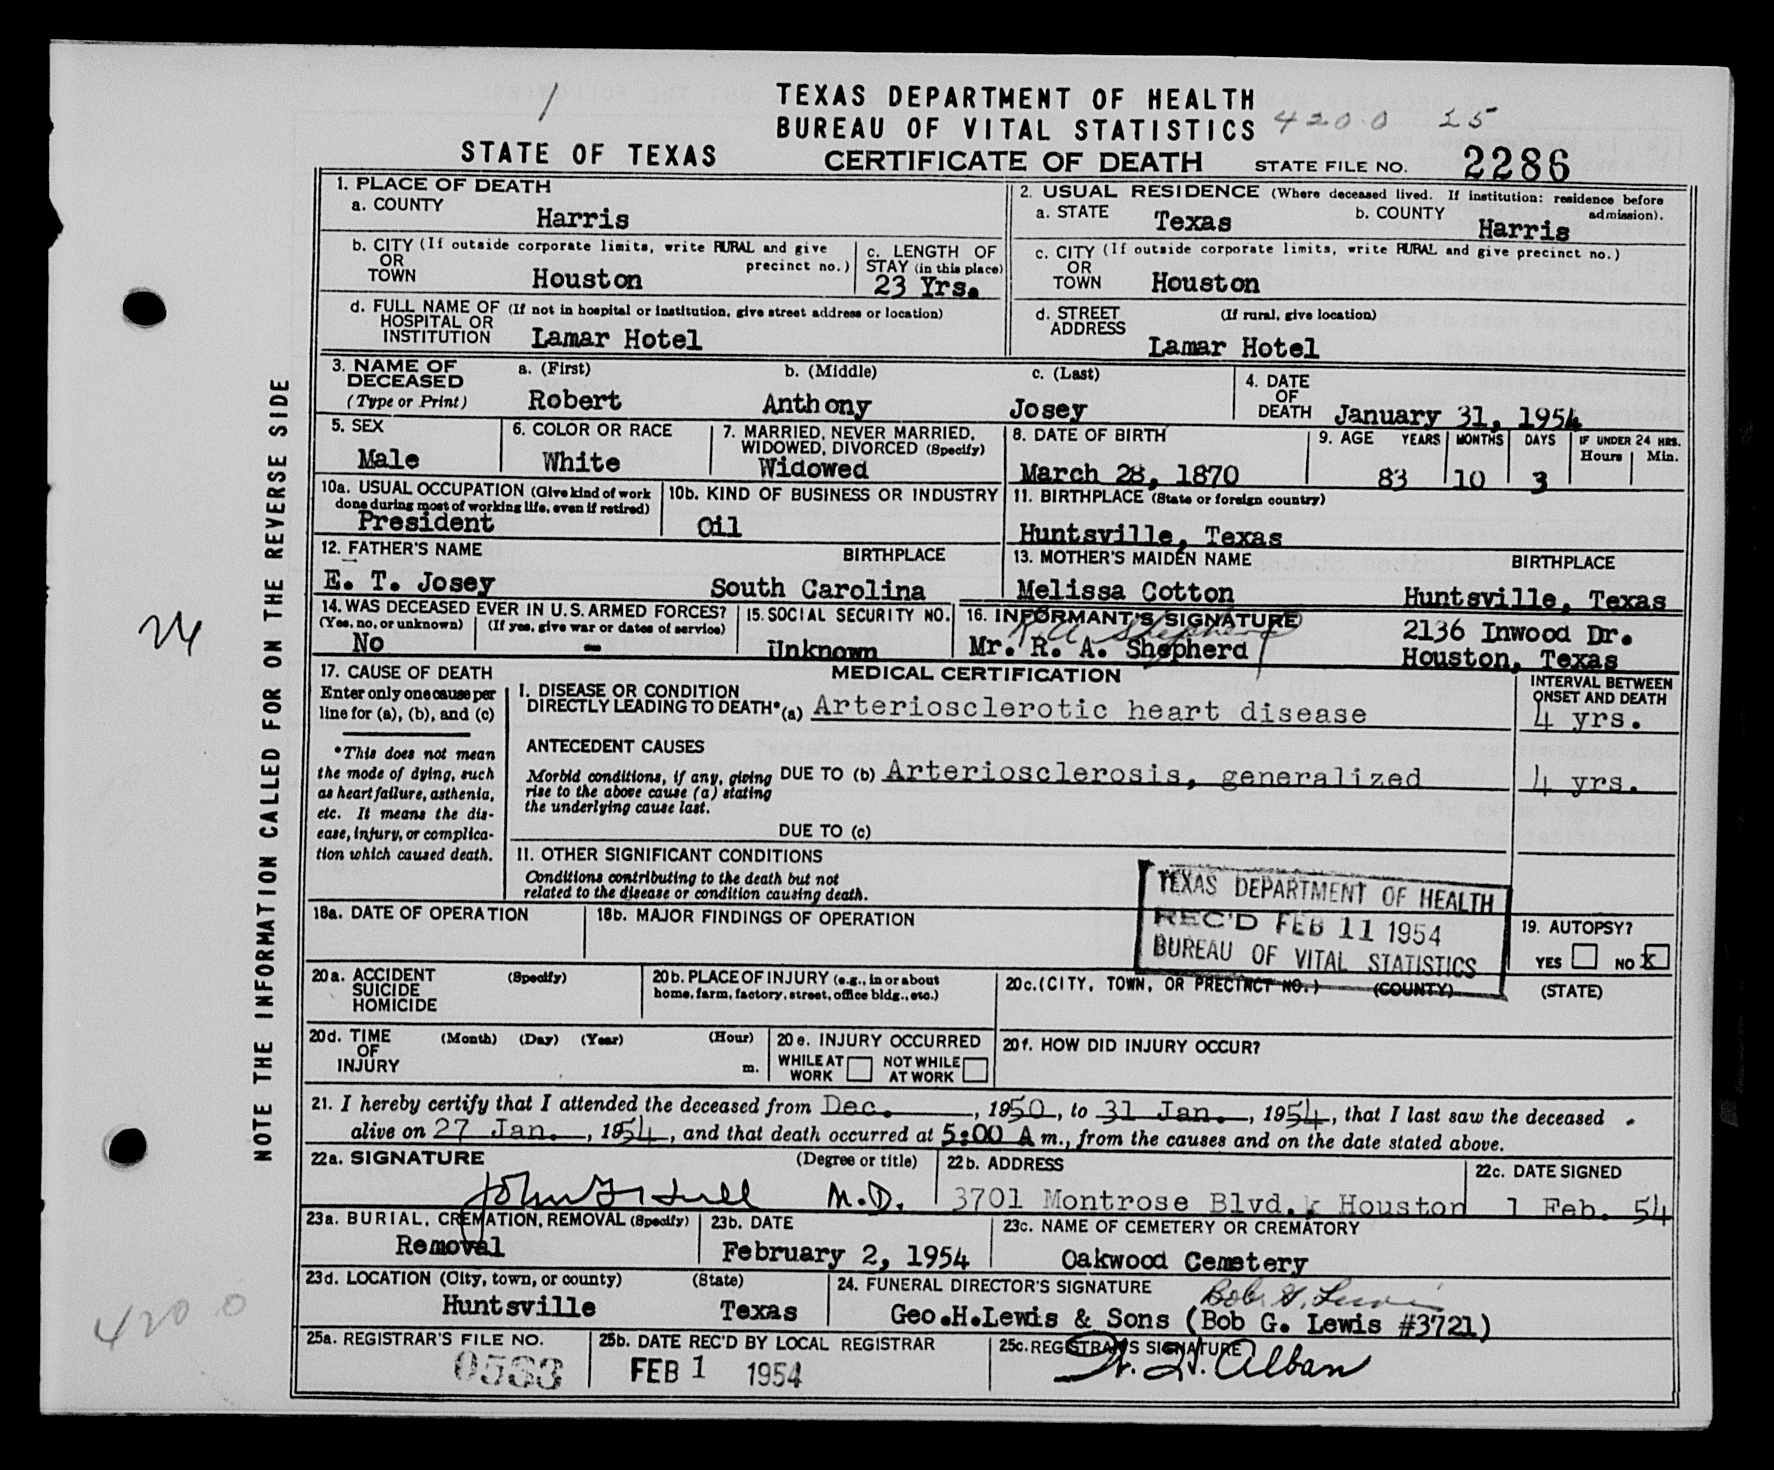 TEXAS DEPARTMENT OF HEALTH
BUREAU OF VITAL STATISTICS 4200 25
STATE OF TEXAS CERTIFICATE OF DEATH STATE FILE NO. 2286
1. PLACE OF DEATH
a. COUNTY Harris
2. USUAL RESIDENCE (Where deceased lived. If institution: residence before admission).
a. STATE Texas b. COUNTY Harris
b. CITY (If outside corporate limits, write RURAL and give precinct no.)
OR
TOWN Houston
c. LENGTH OF
STAY (in this place)
23 Yrs.
c. CITY (If outside corporate limits, write RURAL and give precinct no.)
OR
TOWN Houston
d. FULL NAME OF (If not in hospital or institution, give street address or location)
HOSPITAL OR
INSTITUTION Lamar Hotel
d. STREET (If rural, give location)
ADDRESS
Lamar Hotel
3. NAME OF DECEASED (Type or Print)
a. (First) b. (Middle) c. (Last)
Robert Anthony Josey
4. DATE
OF
DEATH January 31, 1954
5. SEX
Male
6. COLOR OR RACE
White
7. MARRIED, NEVER MARRIED,
WIDOWED, DIVORCED (Specify)
Widowed
8. DATE OF BIRTH
March 28, 1870
9. AGE YEARS MONTHS DAYS IF UNDER 24 HRS.
Hours Min.
83 10 3
10a. USUAL OCCUPATION (Give kind of work
done during most of working life, even if retired)
President
10b. KIND OF BUSINESS OR INDUSTRY
Oil
11. BIRTHPLACE (State or foreign country)
Huntsville, Texas
12. FATHER'S NAME BIRTHPLACE
E. T. Josey South Carolina
13. MOTHER'S MAIDEN NAME BIRTHPLACE
Melissa Cotton Huntsville, Texas
14. WAS DECEASED EVER IN U.S. ARMED FORCES?
(Yes, no, or unknown) (If yes, give war or dates of service)
No -
15. SOCIAL SECURITY NO.
Unknown
16. INFORMANT'S SIGNATURE
R. A. Shepherd
Mr. R. A. Shepherd
2136 Inwood Dr.
Houston, Texas
17. CAUSE OF DEATH
Enter only one cause per
line for (a), (b), and (c)
*This does not mean
the mode of dying, such
as heart failure, asthenia,
etc. It means the dis-
ease, injury, or complica-
tion which caused death.
MEDICAL CERTIFICATION
INTERVAL BETWEEN
ONSET AND DEATH
I. DISEASE OR CONDITION
DIRECTLY LEADING TO DEATH* (a) Arteriosclerotic heart disease 4 yrs.
ANTECEDENT CAUSES
Morbid conditions, if any, giving
rise to the above cause (a) stating
the underlying cause last.
DUE TO (b) Arteriosclerosis, generalized 4 yrs.
DUE TO (c)
II. OTHER SIGNIFICANT CONDITIONS
Conditions contributing to the death but not
related to the disease or condition causing death.
TEXAS DEPARTMENT OF HEALTH
REC'D FEB 11 1954
BUREAU OF VITAL STATISTICS
18a. DATE OF OPERATION
18b. MAJOR FINDINGS OF OPERATION
19. AUTOPSY?
YES NO X
20a. ACCIDENT (Specify)
SUICIDE
HOMICIDE
20b. PLACE OF INJURY (e.g., in or about
home, farm, factory, street, office bldg., etc.)
20c. (CITY, TOWN, OR PRECINCT NO.) (COUNTY) (STATE)
20d. TIME (Month) (Day) (Year) (Hour)
OF
INJURY m.
20e. INJURY OCCURRED
WHILE AT WORK NOT WHILE AT WORK
20f. HOW DID INJURY OCCUR?
21. I hereby certify that I attended the deceased from Dec. , 1950, to 31 Jan. , 1954, that I last saw the deceased
alive on 27 Jan. , 1954, and that death occurred at 5:00 A m., from the causes and on the date stated above.
22a. SIGNATURE (Degree or title)
M.D.
22b. ADDRESS
3701 Montrose Blvd. Houston
22c. DATE SIGNED
1 Feb. 54
23a. BURIAL, CREMATION, REMOVAL (Specify)
Removal
23b. DATE
February 2, 1954
23c. NAME OF CEMETERY OR CREMATORY
Oakwood Cemetery
23d. LOCATION (City, town, or county) (State)
Huntsville Texas
24. FUNERAL DIRECTOR'S SIGNATURE
Bob G. Lewis
Geo.H.Lewis & Sons (Bob G. Lewis #3721)
25a. REGISTRAR'S FILE NO.
0533
25b. DATE REC'D BY LOCAL REGISTRAR
FEB 1 1954
25c. REGISTRAR'S SIGNATURE
W. H. Alban
NOTE THE INFORMATION CALLED FOR ON THE REVERSE SIDE
24
4200